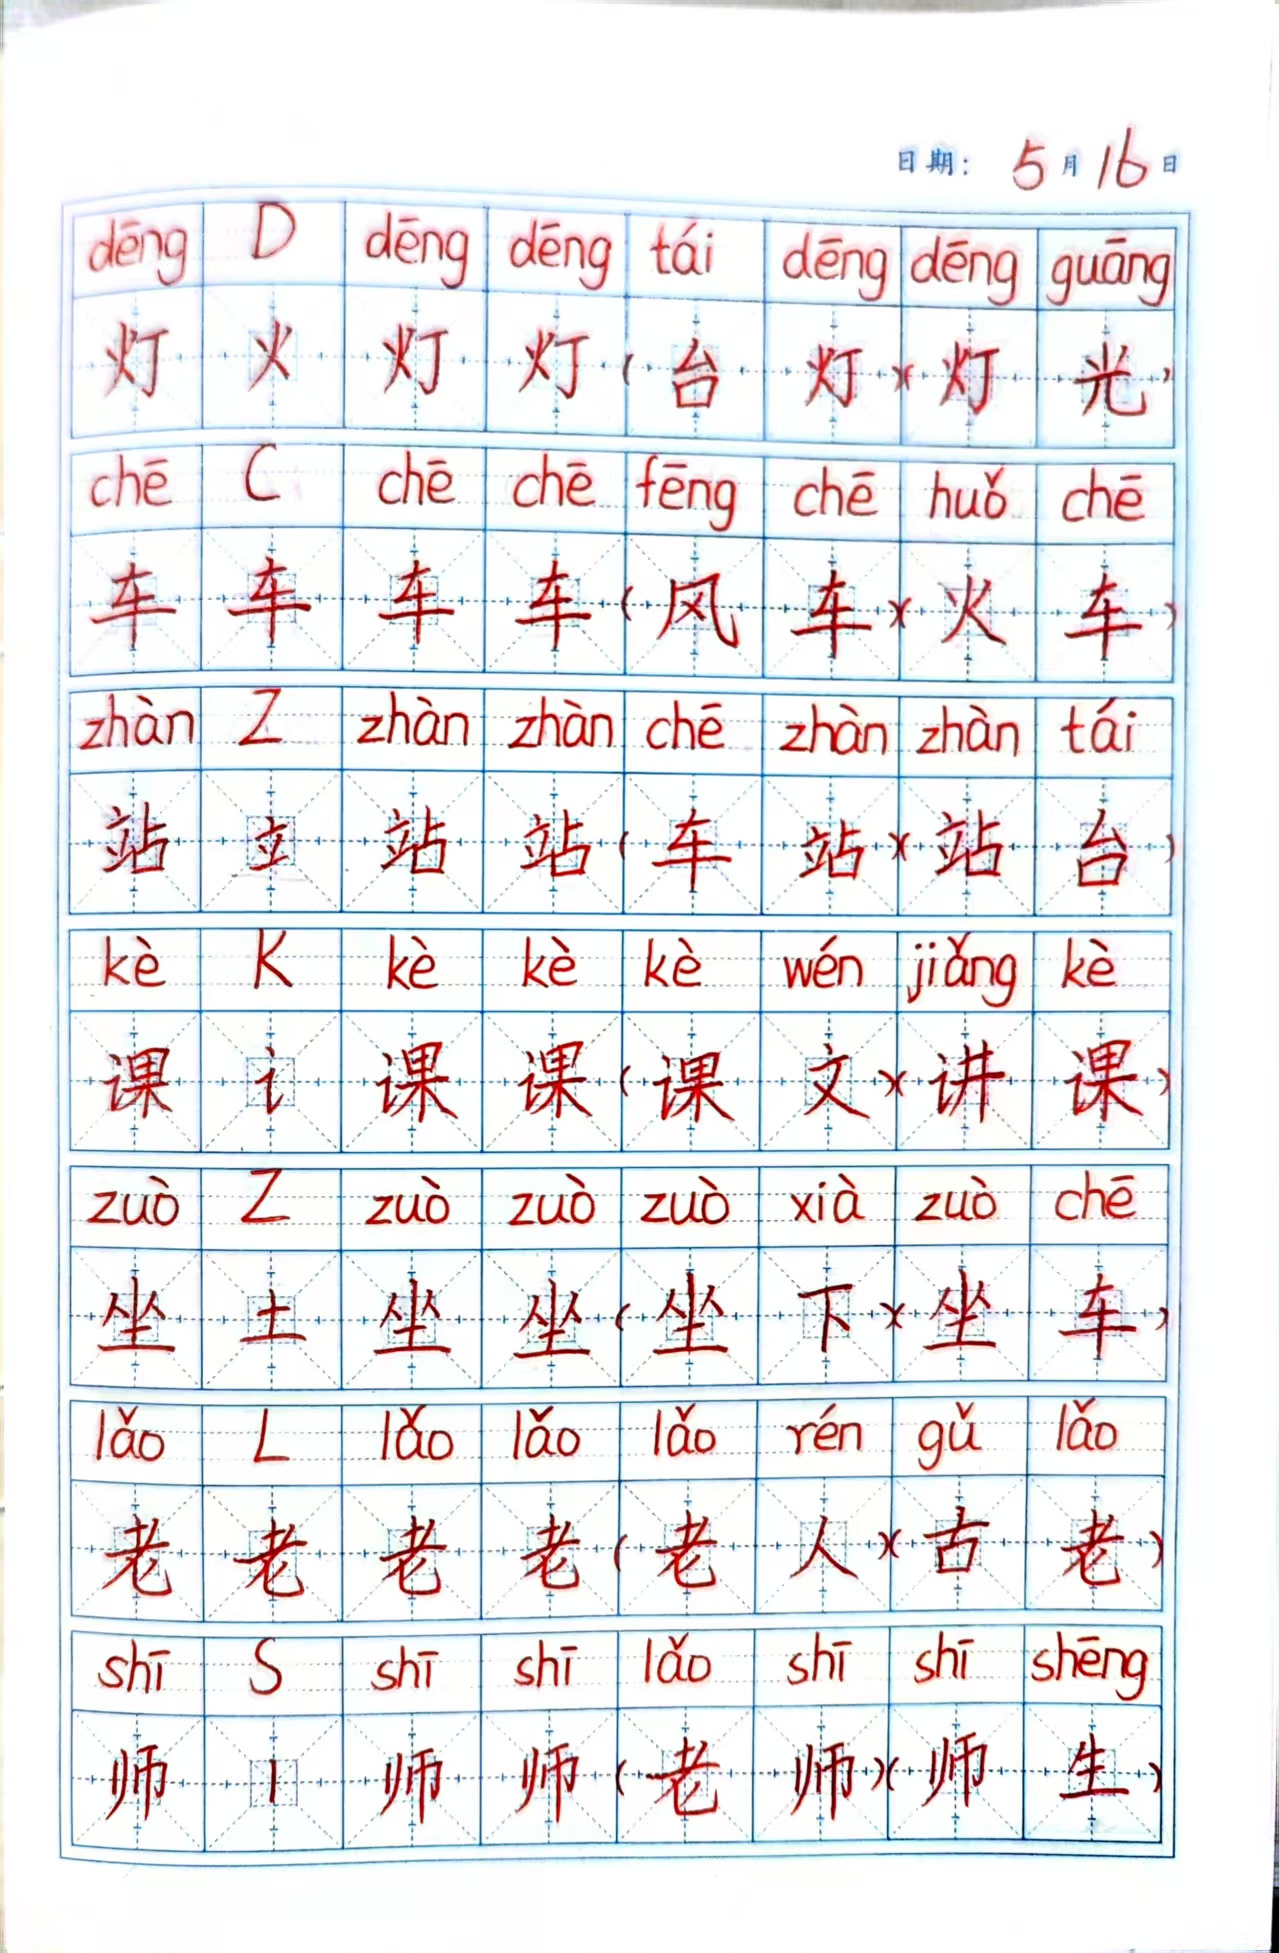 日期： 5月16日
dēng D dēng dēng tái dēng dēng guāng
灯 火 灯 灯（台 灯）（灯 光）
chē C chē chē fēng chē huǒ chē
车 车 车 车（风 车）（火 车）
zhàn Z zhàn zhàn chē zhàn zhàn tái
站 立 站 站（车 站）（站 台）
kè K kè kè kè wén jiǎng kè
课 讠 课 课（课 文）（讲 课）
zuò Z zuò zuò zuò xià zuò chē
坐 土 坐 坐（坐 下）（坐 车）
lǎo L lǎo lǎo lǎo rén gǔ lǎo
老 老 老 老（老 人）（古 老）
shī S shī shī lǎo shī shī shēng
师 丨 师 师（老 师）（师 生）